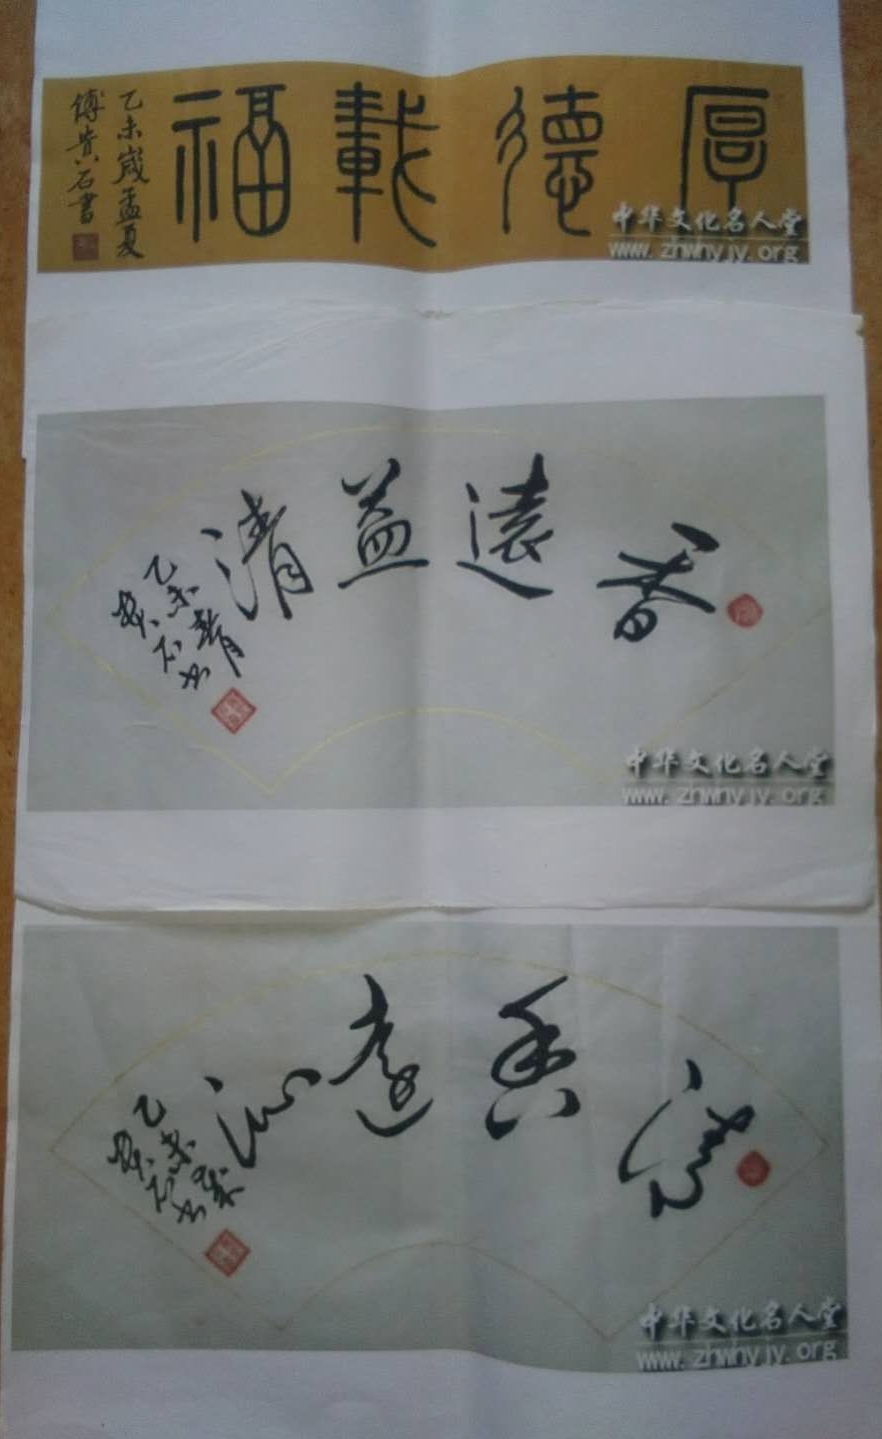 厚德載福
乙未歲孟夏
傅貴石書
中华文化名人堂
www.zhwhyjy.org
香遠益清
乙未
石书
中华文化名人堂
www.zhwhyjy.org
清香遠沁
乙未歲
石书
中华文化名人堂
www.zhwhyjy.org